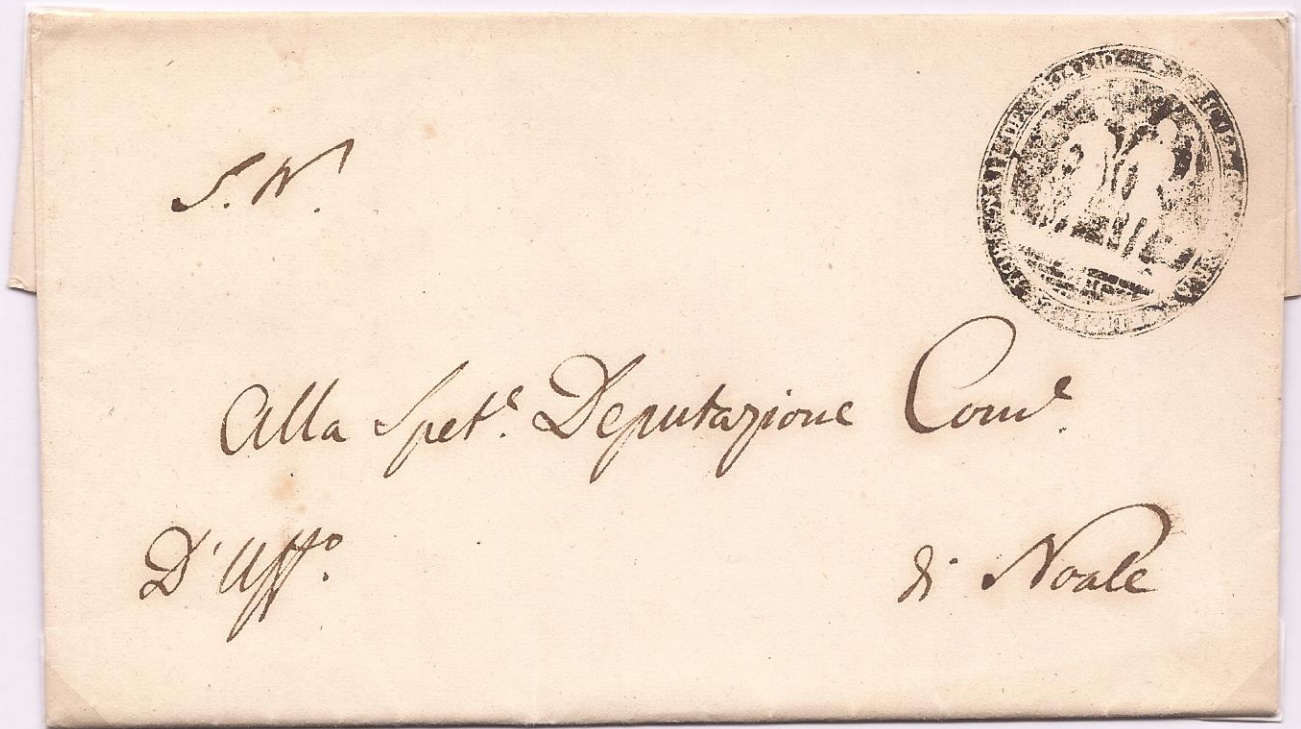 S. N.
Alla Spet.e Deputazione Com.e
D'Uff.o
di Noale